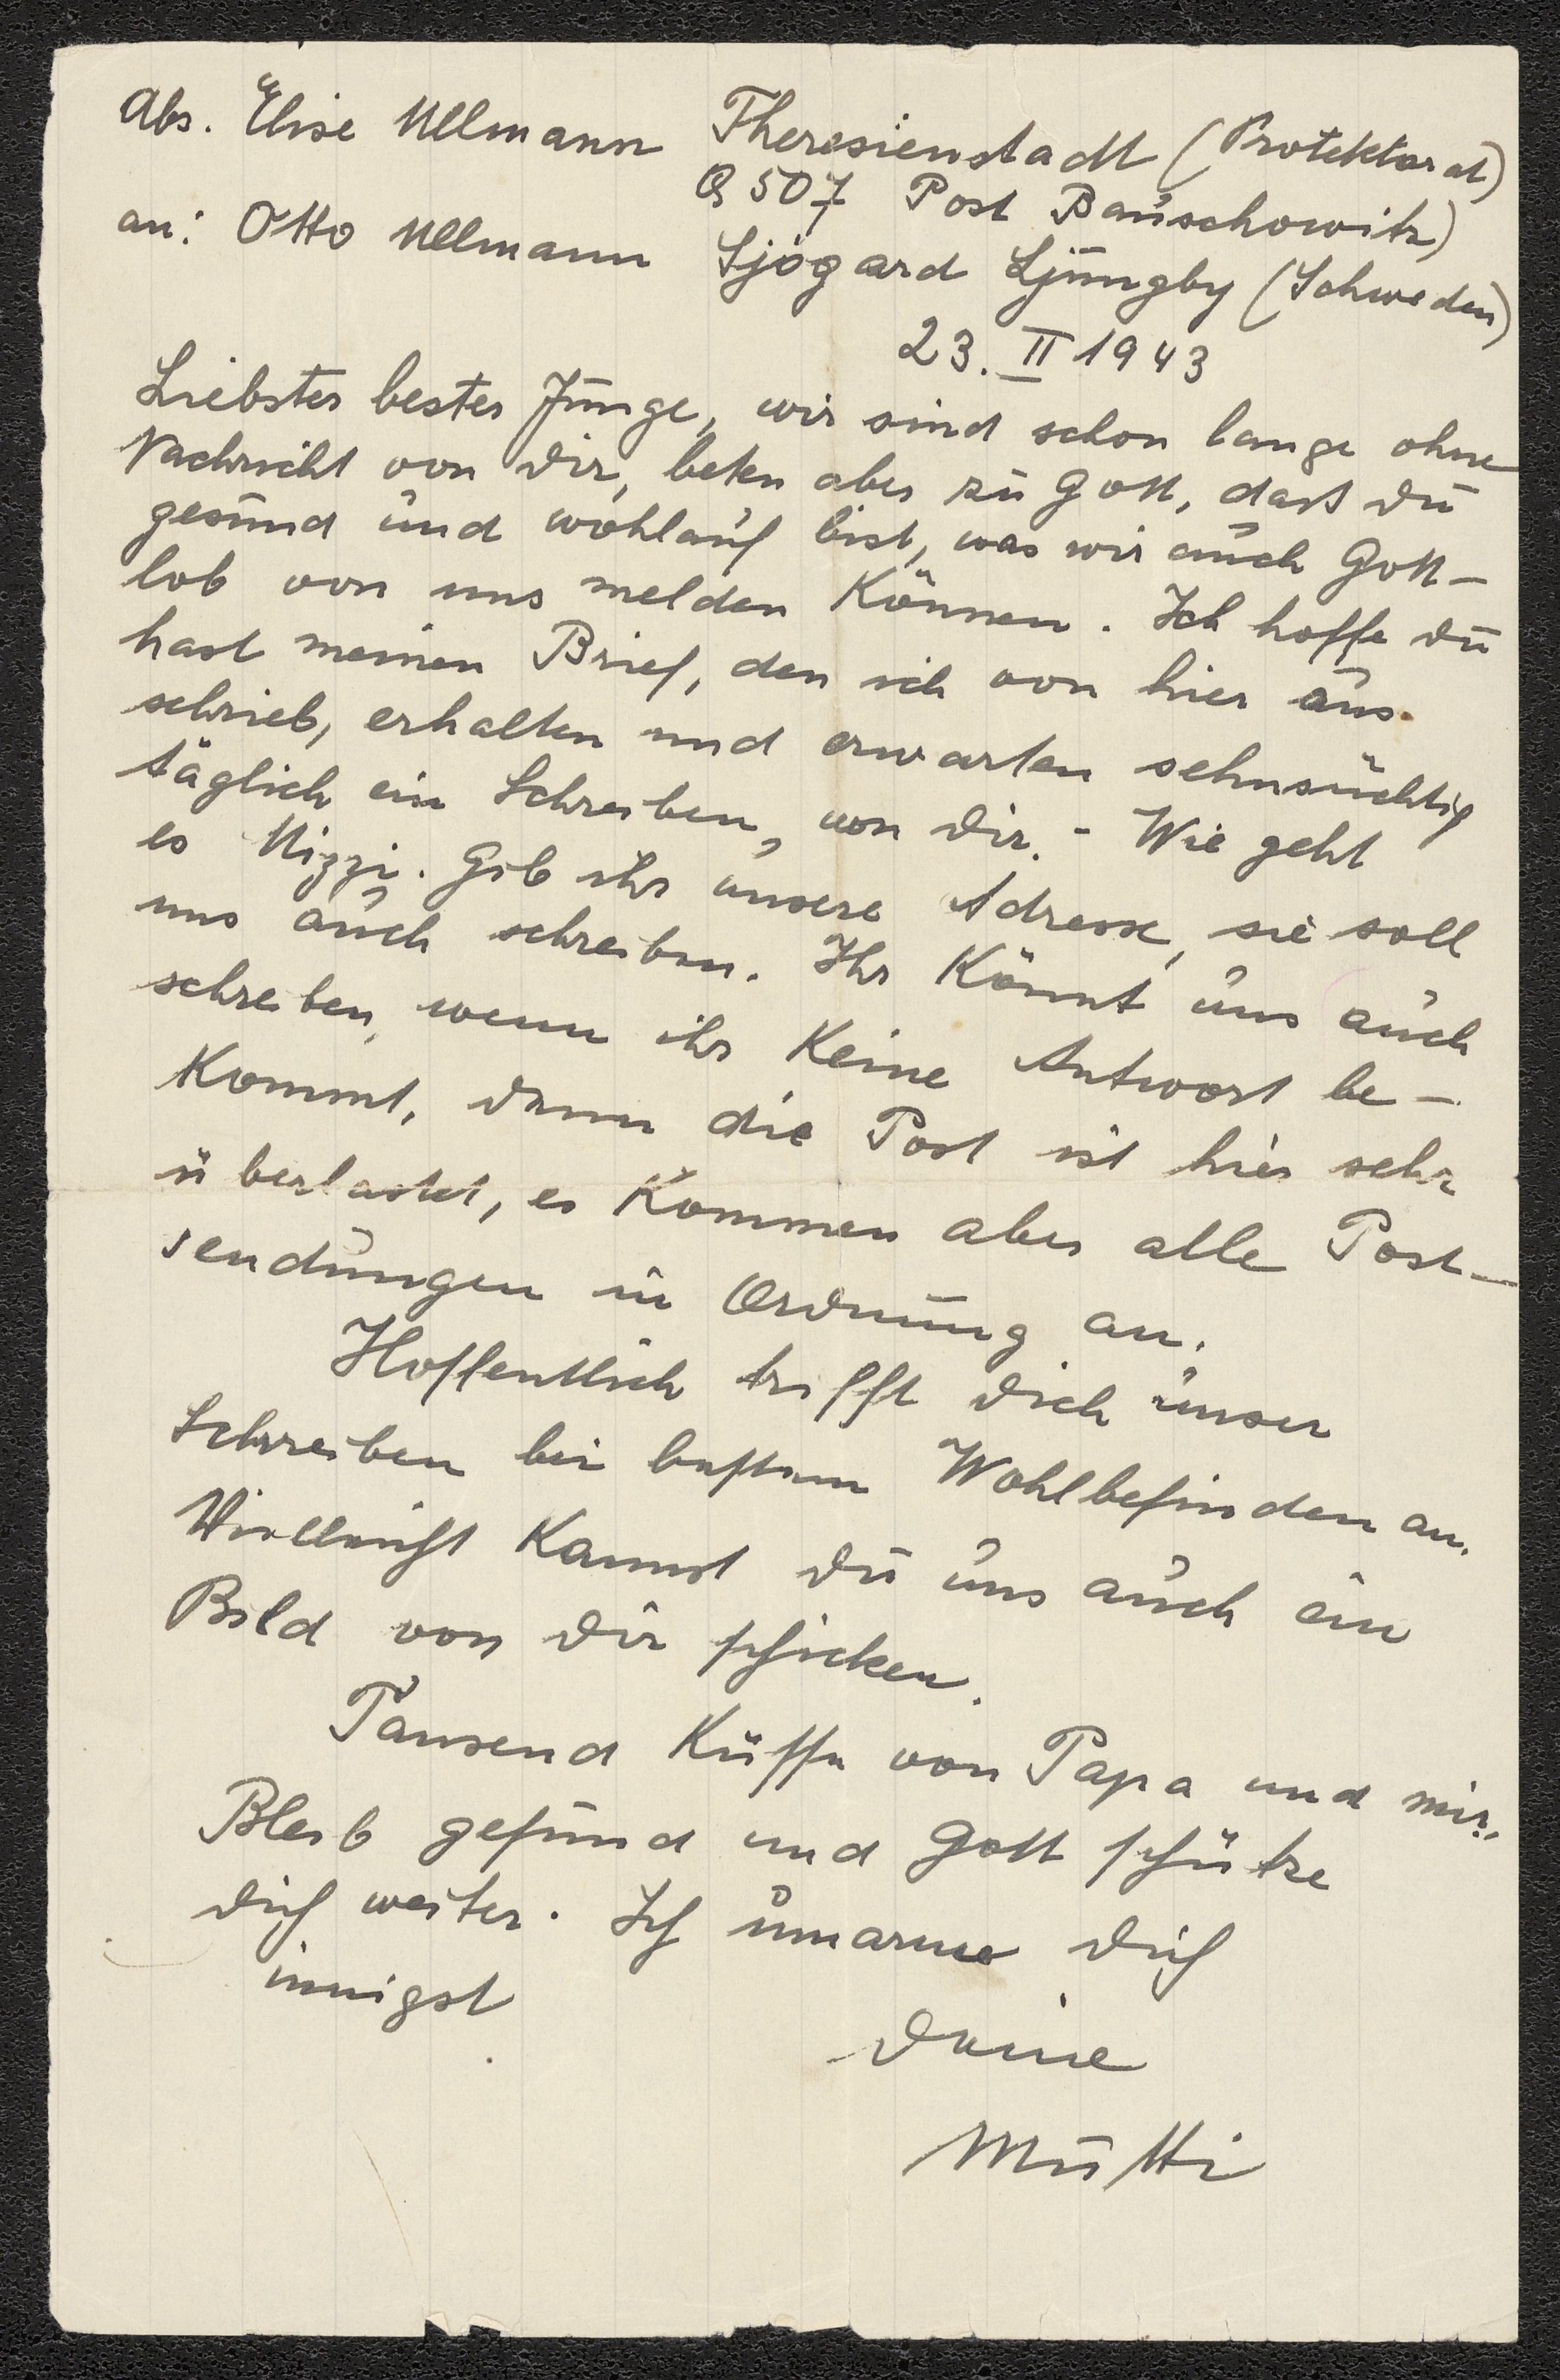 Abs. Elise Ullmann Theresienstadt (Protektorat)
Q 507 Post Bauschowitz)
an: Otto Ullmann Sjögard Ljungby (Schweden)
23. II 1943
Liebster bester Junge, wir sind schon lange ohne
Nachricht von Dir, beten aber zu Gott, dass Du
gesund und wohlauf bist, was wir auch Gott-
lob von uns melden Können. Ich hoffe Du
hast meinen Brief, den ich von hier aus
schrieb, erhalten und erwarten sehnsüchtig
täglich ein Schreiben, von Dir. - Wie geht
es Mizzi. Gib ihr unsere Adresse, sie soll
uns auch schreiben. Ihr Könnt uns auch
schreiben, wenn ihr Keine Antwort be-
Kommt, denn die Post ist hier sehr
überlastet, es Kommen aber alle Post-
sendungen in Ordnung an.
Hoffentlich trifft Dich unser
Schreiben bei bestem Wohlbefinden an.
Vielleicht Kannst Du uns auch ein
Bild von Dir schicken.
Tausend Küsse von Papa und mir.
Bleib gesund und Gott schütze
Dich weiter. Ich umarme Dich
innigst
Deine
Mutti